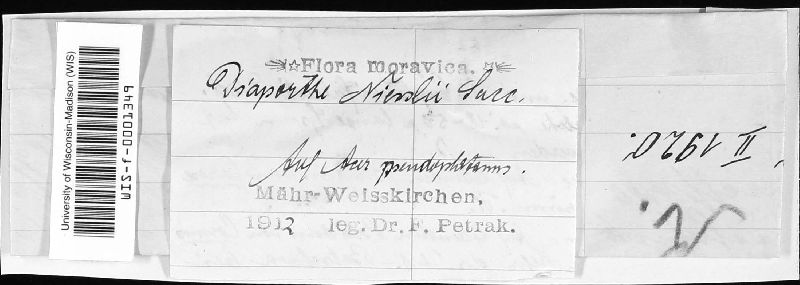 Flora moravica.
Diaporthe Niesslii Sacc.
Auf Acer pseudoplatanus.
Mähr-Weisskirchen,
1912 leg. Dr. F. Petrak.
University of Wisconsin-Madison (WIS)
WIS-f-0001349
II 1920.